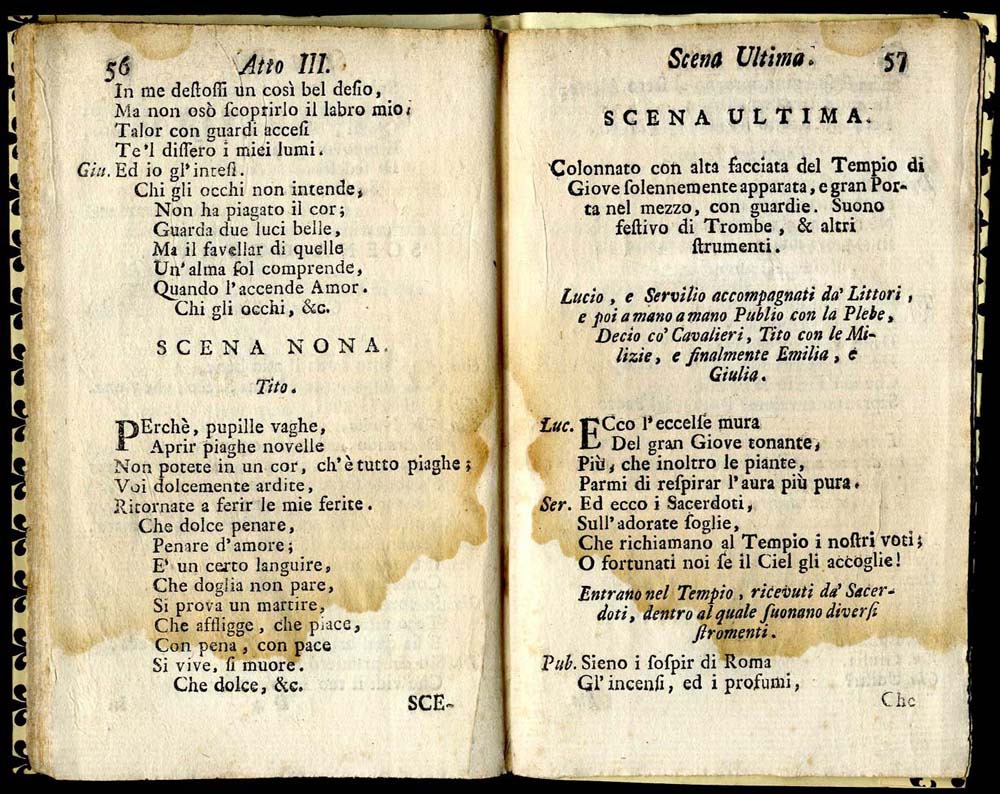 56 Atto III.
In me deſtoſſi un così bel deſio,
Ma non osò ſcoprirlo il labro mio:
Talor con guardi acceſi
Te'l diſſero i miei lumi.
Giu. Ed io gl'inteſi.
Chi gli occhi non intende,
Non ha piagato il cor;
Guarda due luci belle,
Ma il favellar di quelle
Un'alma ſol comprende,
Quando l'accende Amor.
Chi gli occhi, &c.
SCENA NONA.
Tito.
PErchè, pupille vaghe,
Aprir piaghe novelle
Non potete in un cor, ch'è tutto piaghe;
Voi dolcemente ardite,
Ritornate a ferir le mie ferite.
Che dolce penare,
Penare d'amore;
E' un certo languire,
Che doglia non pare,
Si prova un martire,
Che affligge, che piace,
Con pena, con pace
Si vive, ſi muore.
Che dolce, &c.
SCE-
Scena Ultima. 57
SCENA ULTIMA.
Colonnato con alta facciata del Tempio di
Giove ſolennemente apparata, e gran Por-
ta nel mezzo, con guardie. Suono
feſtivo di Trombe, & altri
ſtrumenti.
Lucio, e Servilio accompagnati da' Littori,
e poi a mano a mano Publio con la Plebe,
Decio co' Cavalieri, Tito con le Mi-
lizie, e finalmente Emilia, e
Giulia.
Luc. ECco l'eccelſe mura
Del gran Giove tonante,
Più, che inoltro le piante,
Parmi di reſpirar l'aura più pura.
Ser. Ed ecco i Sacerdoti,
Sull'adorate ſoglie,
Che richiamano al Tempio i noſtri voti;
O fortunati noi ſe il Ciel gli accoglie!
Entrano nel Tempio, ricevuti da' Sacer-
doti, dentro al quale ſuonano diverſi
ſtromenti.
Pub. Sieno i ſoſpir di Roma
Gl'incenſi, ed i profumi,
Che